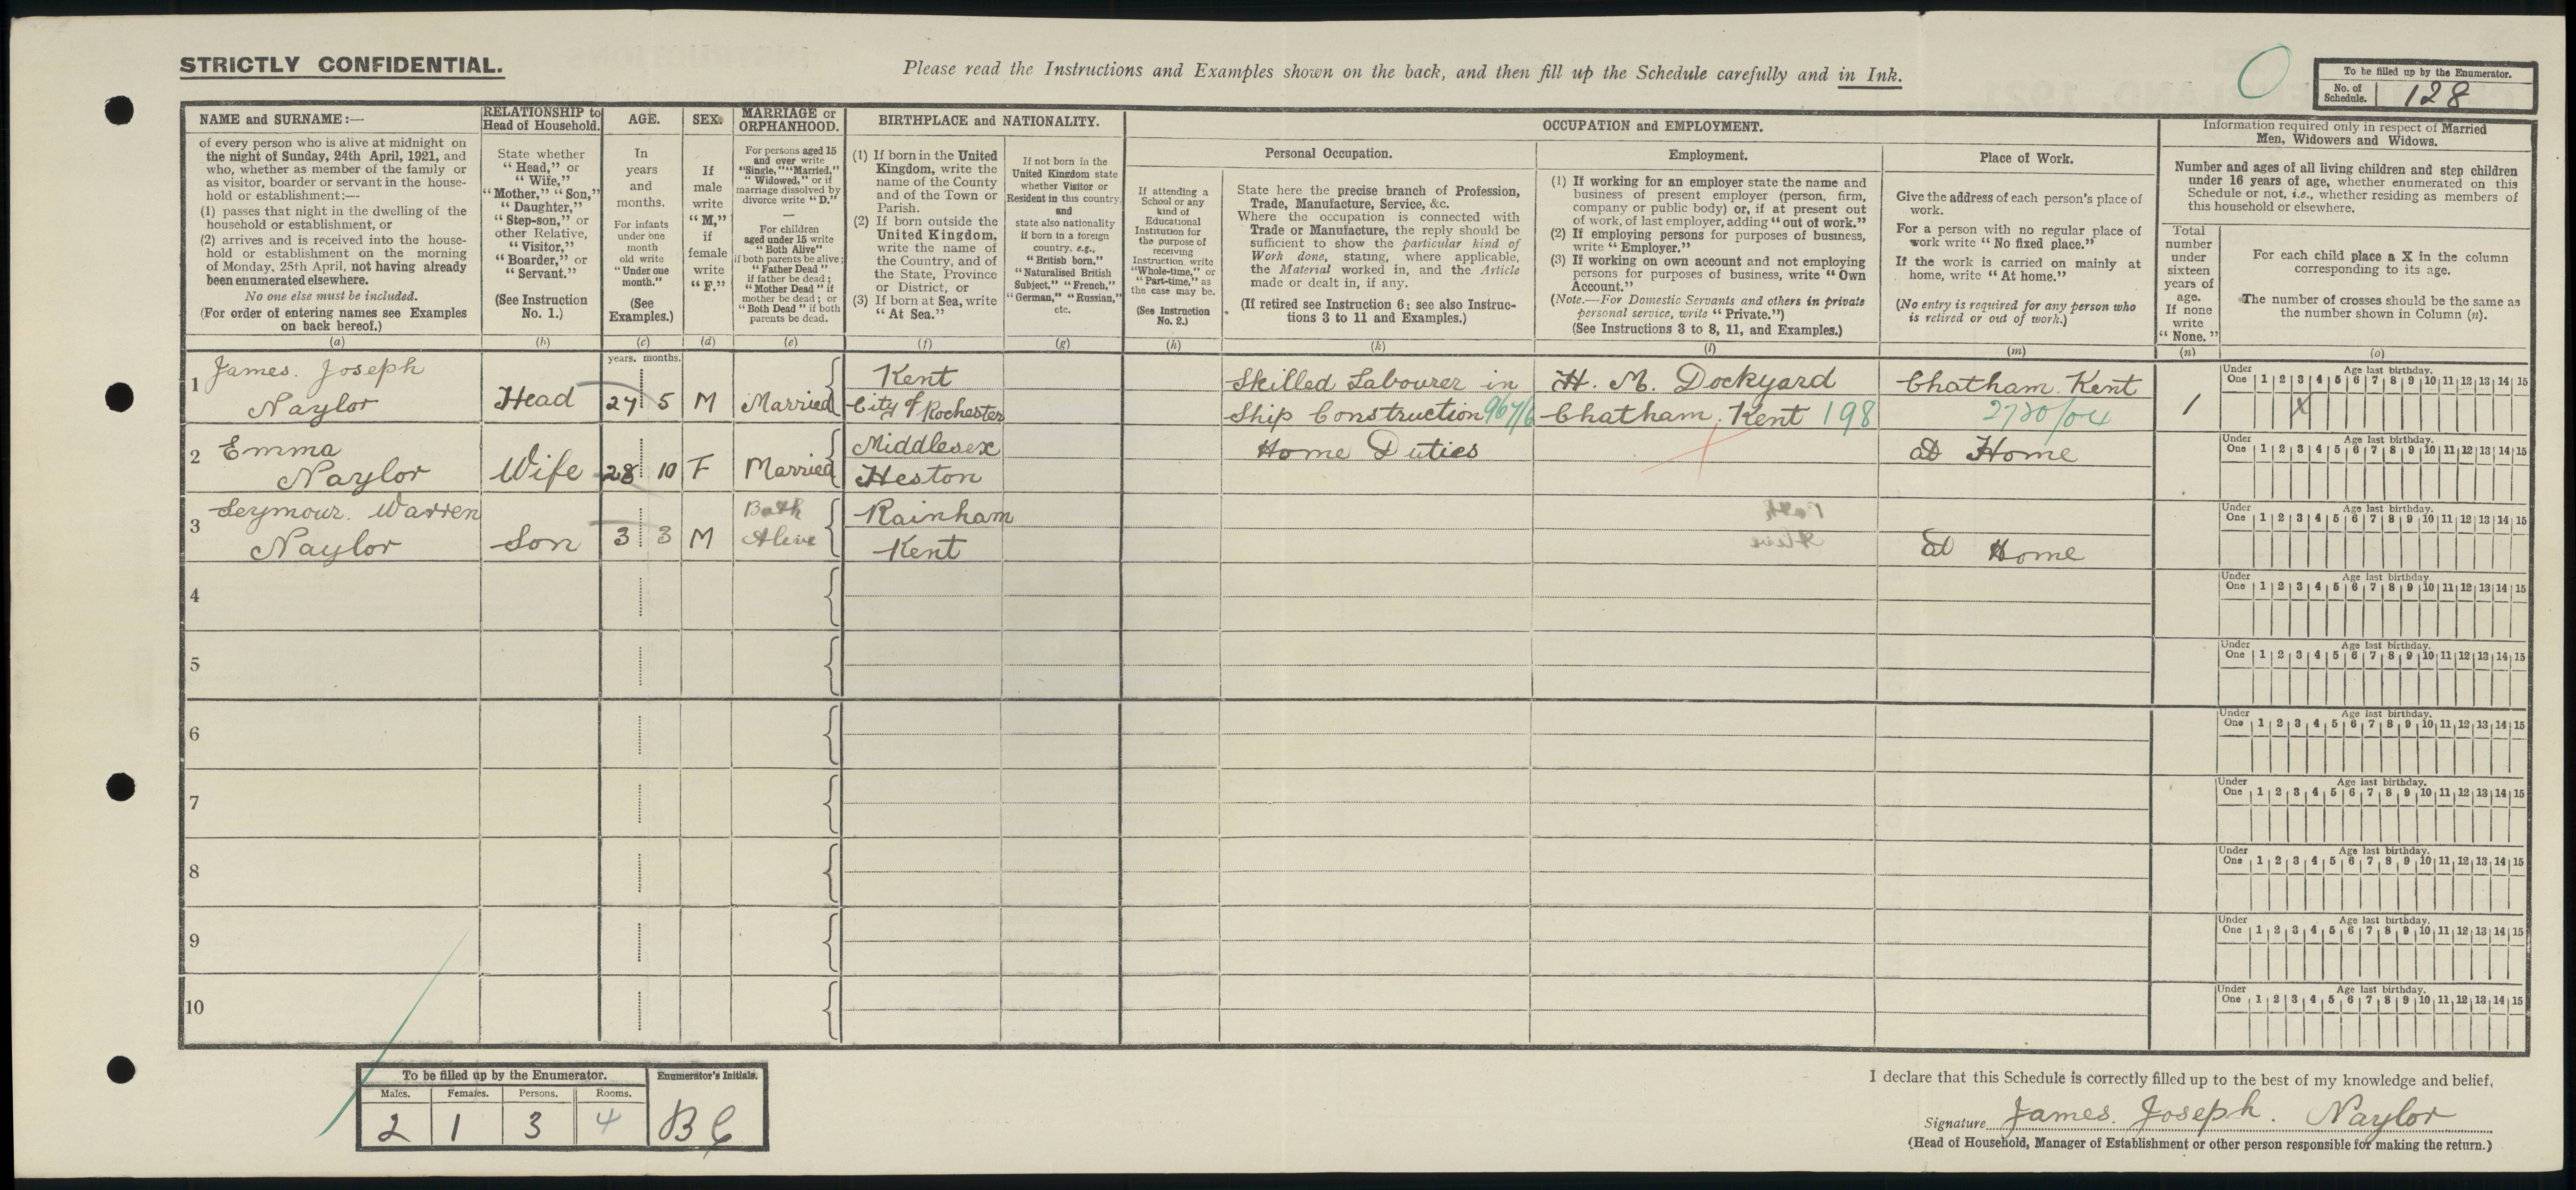 STRICTLY CONFIDENTIAL.
Please read the Instructions and Examples shown on the back, and then fill up the Schedule carefully and in Ink.
To be filled up by the Enumerator.
No. of Schedule. 128
NAME and SURNAME:—
of every person who is alive at midnight on
the night of Sunday, 24th April, 1921, and
who, whether as member of the family or
as visitor, boarder or servant in the house-
hold or establishment:—
(1) passes that night in the dwelling of the
household or establishment, or
(2) arrives and is received into the house-
hold or establishment on the morning
of Monday, 25th April, not having already
been enumerated elsewhere.
No one else must be included.
(For order of entering names see Examples
on back hereof.)
(a)
RELATIONSHIP to
Head of Household.
State whether
"Head," or
"Wife,"
"Mother," "Son,"
"Daughter,"
"Step-son," or
other Relative,
"Visitor,"
"Boarder," or
"Servant."
(See Instruction
No. 1.)
(b)
AGE.
In
years
and
months.
For infants
under one
month
old write
"Under one
month."
(See
Examples.)
(c)
SEX.
If
male
write
"M,"
if
female
write
"F."
(d)
MARRIAGE or
ORPHANHOOD.
For persons aged 15
and over write
"Single," "Married,"
"Widowed," or if
marriage dissolved by
divorce write "D."
—
For children
aged under 15 write
"Both Alive"
if both parents be alive;
"Father Dead"
if father be dead;
"Mother Dead" if
mother be dead; or
"Both Dead" if both
parents be dead.
(e)
BIRTHPLACE and NATIONALITY.
(1) If born in the United
Kingdom, write the
name of the County
and of the Town or
Parish.
(2) If born outside the
United Kingdom,
write the name of
the Country, and of
the State, Province
or District, or
(3) If born at Sea, write
"At Sea."
(f)
If not born in the
United Kingdom state
whether Visitor or
Resident in this country,
and
state also nationality
if born in a foreign
country. e.g.,
"British born,"
"Naturalised British
Subject," "French,"
"German," "Russian,"
etc.
(g)
OCCUPATION and EMPLOYMENT.
If attending a
School or any
kind of
Educational
Institution for
the purpose of
receiving
Instruction, write
"Whole-time," or
"Part-time," as
the case may be.
(See Instruction
No. 2.)
(h)
Personal Occupation.
State here the precise branch of Profession,
Trade, Manufacture, Service, &c.
Where the occupation is connected with
Trade or Manufacture, the reply should be
sufficient to show the particular kind of
Work done, stating, where applicable,
the Material worked in, and the Article
made or dealt in, if any.
(If retired see Instruction 6; see also Instruc-
tions 3 to 11 and Examples.)
(k)
Employment.
(1) If working for an employer state the name and
business of present employer (person, firm,
company or public body) or, if at present out
of work, of last employer, adding "out of work."
(2) If employing persons for purposes of business,
write "Employer."
(3) If working on own account and not employing
persons for purposes of business, write "Own
Account."
(Note.—For Domestic Servants and others in private
personal service, write "Private.")
(See Instructions 3 to 8, 11, and Examples.)
(l)
Place of Work.
Give the address of each person's place of
work.
For a person with no regular place of
work write "No fixed place."
If the work is carried on mainly at
home, write "At home."
(No entry is required for any person who
is retired or out of work.)
(m)
Information required only in respect of Married
Men, Widowers and Widows.
Number and ages of all living children and step children
under 16 years of age, whether enumerated on this
Schedule or not, i.e., whether residing as members of
this household or elsewhere.
Total
number
under
sixteen
years of
age.
If none
write
"None."
(n)
For each child place a X in the column
corresponding to its age.
The number of crosses should be the same as
the number shown in Column (n).
(o)
years. months.
1 James. Joseph Naylor Head 27 5 M Married Kent City of Rochester Skilled Labourer in Ship Construction 967/6 H. M. Dockyard Chatham, Kent 198 Chatham. Kent 2720/04 1
Under One Age last birthday. 1 2 3 4 5 6 7 8 9 10 11 12 13 14 15
X
2 Emma Naylor Wife 28 10 F Married Middlesex Heston Home Duties at Home
Under One Age last birthday. 1 2 3 4 5 6 7 8 9 10 11 12 13 14 15
3 Seymour. Warren Naylor Son 3 3 M Both Alive Rainham Kent at Home
Under One Age last birthday. 1 2 3 4 5 6 7 8 9 10 11 12 13 14 15
4
Under One Age last birthday. 1 2 3 4 5 6 7 8 9 10 11 12 13 14 15
5
Under One Age last birthday. 1 2 3 4 5 6 7 8 9 10 11 12 13 14 15
6
Under One Age last birthday. 1 2 3 4 5 6 7 8 9 10 11 12 13 14 15
7
Under One Age last birthday. 1 2 3 4 5 6 7 8 9 10 11 12 13 14 15
8
Under One Age last birthday. 1 2 3 4 5 6 7 8 9 10 11 12 13 14 15
9
Under One Age last birthday. 1 2 3 4 5 6 7 8 9 10 11 12 13 14 15
10
Under One Age last birthday. 1 2 3 4 5 6 7 8 9 10 11 12 13 14 15
To be filled up by the Enumerator.
Males. Females. Persons. Rooms.
2 1 3 4
Enumerator's Initials.
BC
I declare that this Schedule is correctly filled up to the best of my knowledge and belief,
Signature James. Joseph. Naylor
(Head of Household, Manager of Establishment or other person responsible for making the return.)